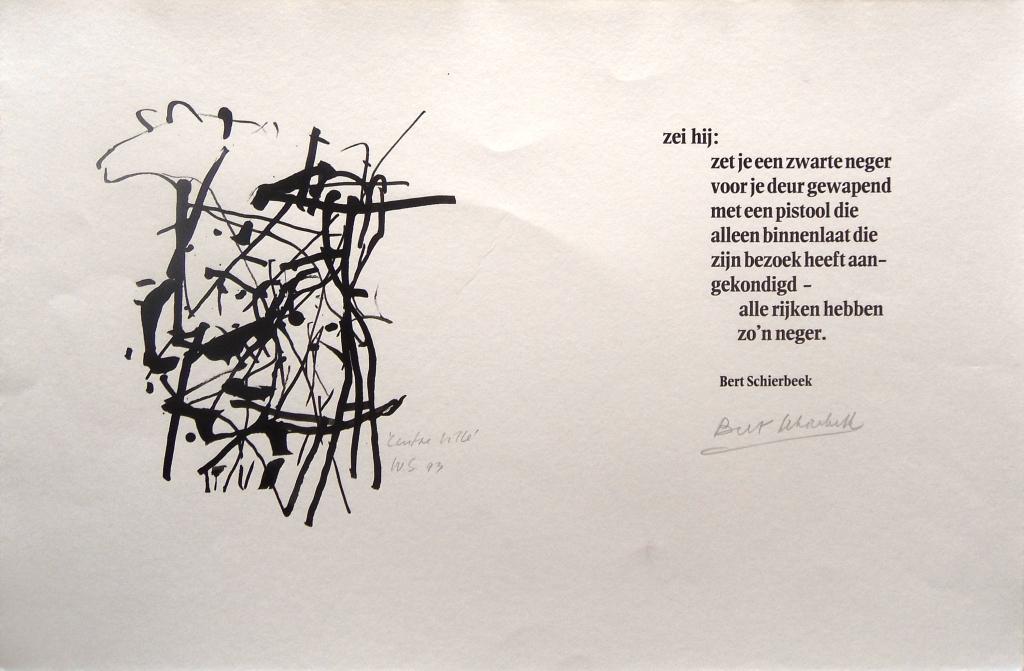 zei hij:
zet je een zwarte neger
voor je deur gewapend
met een pistool die
alleen binnenlaat die
zijn bezoek heeft aan-
gekondigd –
alle rijken hebben
zo'n neger.
Bert Schierbeek
Bert Schierbeek
W.S. 93